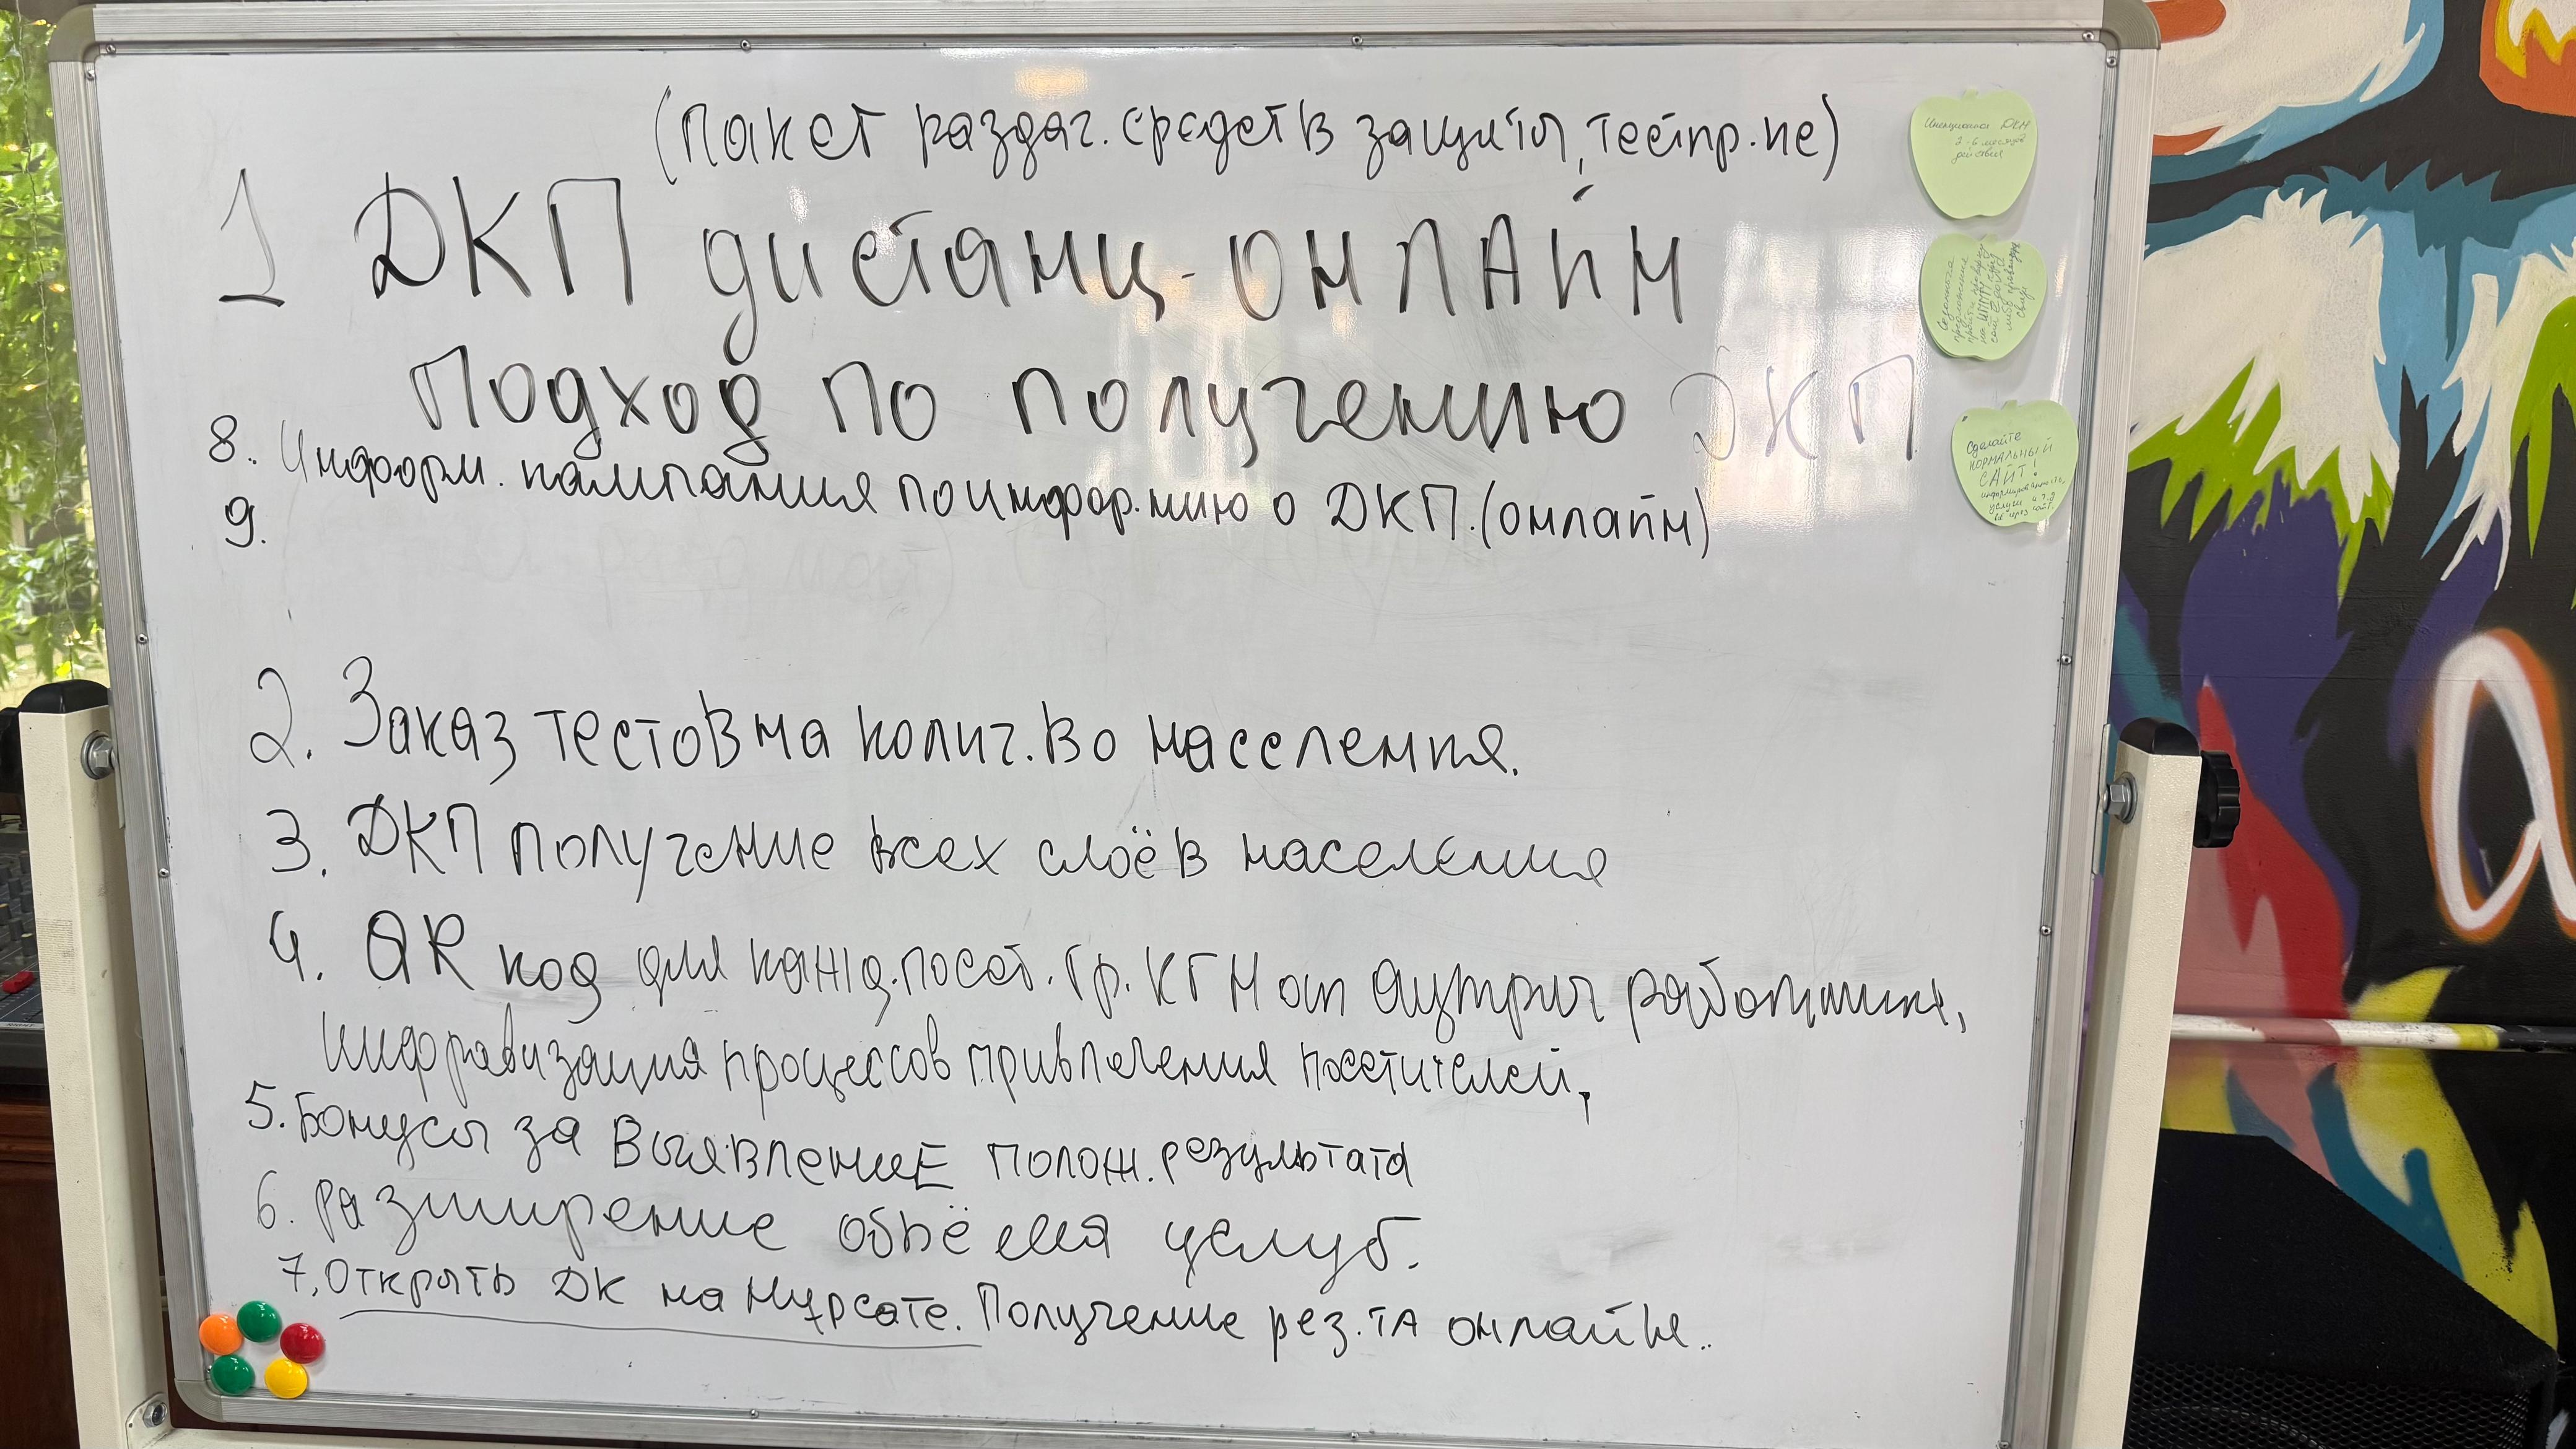 (Пакет раздач. средств защиты, тестир.ие)
1 ДКП дистанц-ОНЛАЙН
Подход по получению ДКП
8. Информ. кампания по информ.нию о ДКП. (онлайн)
9.
2. Заказ тестов на колич.во населения.
3. ДКП получение всех слоёв населения
4. QR код для кажд. посет. гр. КГН от аутрич работника,
цифровизация процессов привлечения посетителей,
5. Бонусы за ВыявлениЕ полож. результата
6. Расширение объёма услуг.
7. Открыть ДК на Нурсате. Получение рез.та онлайн.
Инъекционная ДКП
2-6 месяцев
действия
Сделайте
НОРМАЛЬНЫЙ
САЙТ!